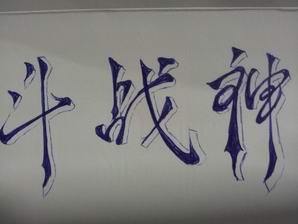 斗战神